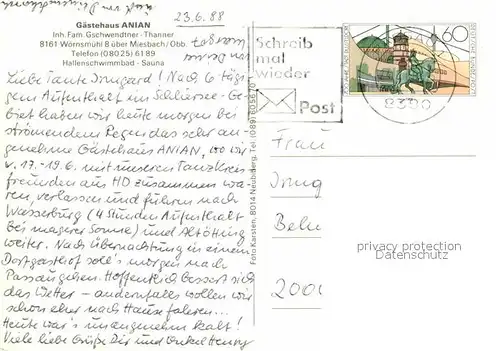 Gästehaus ANIAN
Inh. Fam. Gschwendtner - Thanner
8161 Wörnsmühl 8 über Miesbach/Obb.
Telefon (08025) 6189
Hallenschwimmbad - Sauna
23.6.88
Schreib
mal
wieder
Post
60
DEUTSCHE BUNDESPOST
8390
Liebe Tante Irmgard! Nach 6 tägi-
gem Aufenthalt im Schliersee-Ge-
biet haben wir heute morgen bei
strömendem Regen das sehr an-
genehme Gästehaus ANIAN, wo wir
v. 17.-19.6. mit unseren Tanzkreis-
freunden aus HD zusammen wa-
ren, verlassen und fuhren nach
Wasserburg (4 Stunden Aufenthalt
bei magerer Sonne) und Altötting
weiter. Nach Übernachtung in einem
Dorfgasthof soll's morgen nach
Passau gehen. Hoffentlich bessert sich
das Wetter - andernfalls wollen wir
schon eher nach Hause fahren...
Heute war's unangenehm kalt!
Viele liebe Grüße Dir und Onkel Henry
Foto Karsten, 8014 Neubiberg, Tel. (089)
Frau
Irmg
2000
privacy protection
Datenschutz